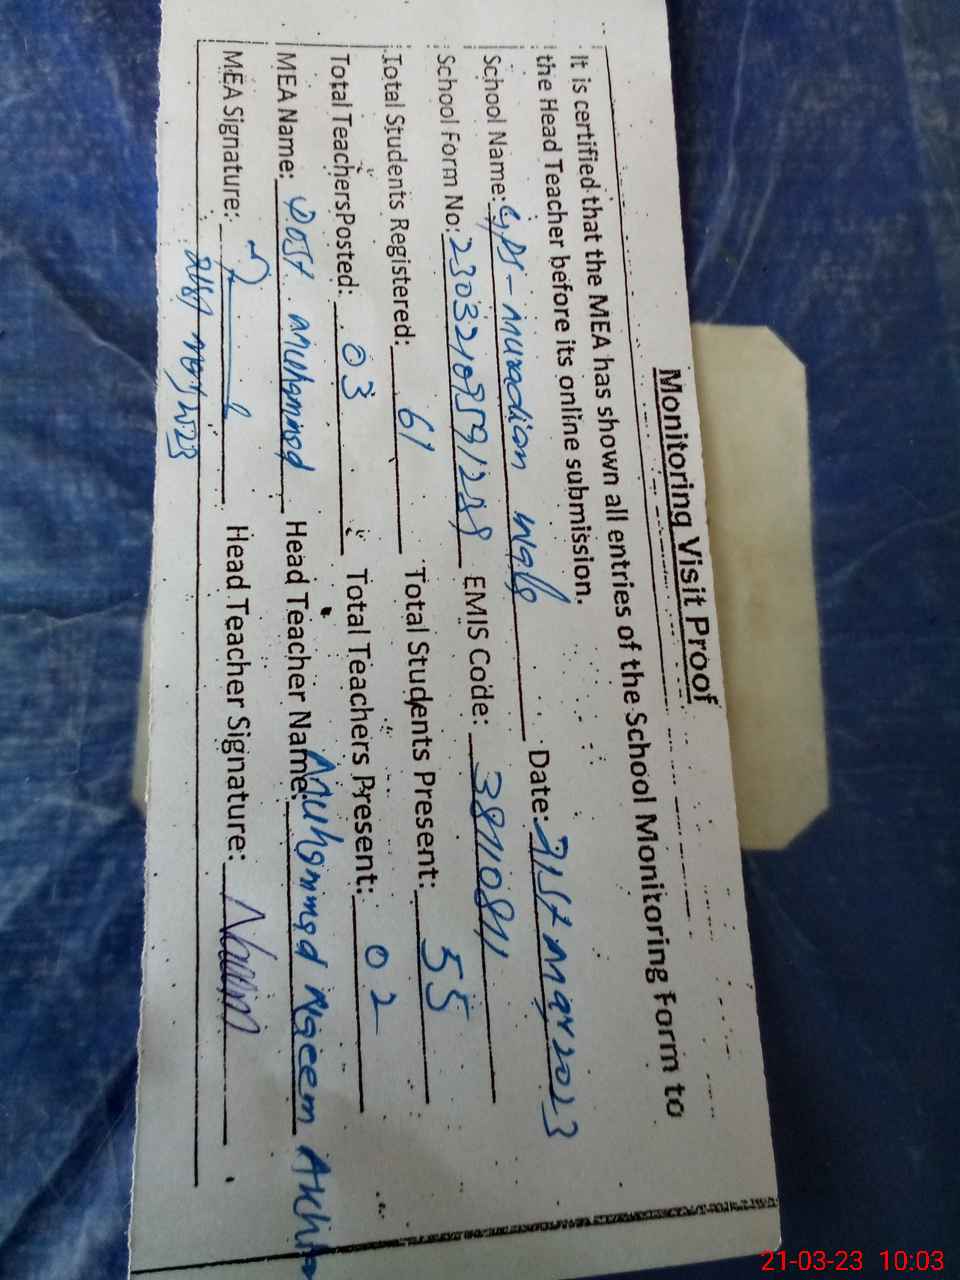 Monitoring Visit Proof
It is certified that the MEA has shown all entries of the School Monitoring Form to
the Head Teacher before its online submission.
School Name: GPS - muradian wala Date: 21st Mar 2023
School Form No: EMIS Code:
Total Students Registered: 61 Total Students Present: 55
Total Teachers Posted: 03 Total Teachers Present: 02
MEA Name: Dost muhammad Head Teacher Name: Muhammad Naeem
MEA Signature: Head Teacher Signature: Naeem
21-03-23 10:03